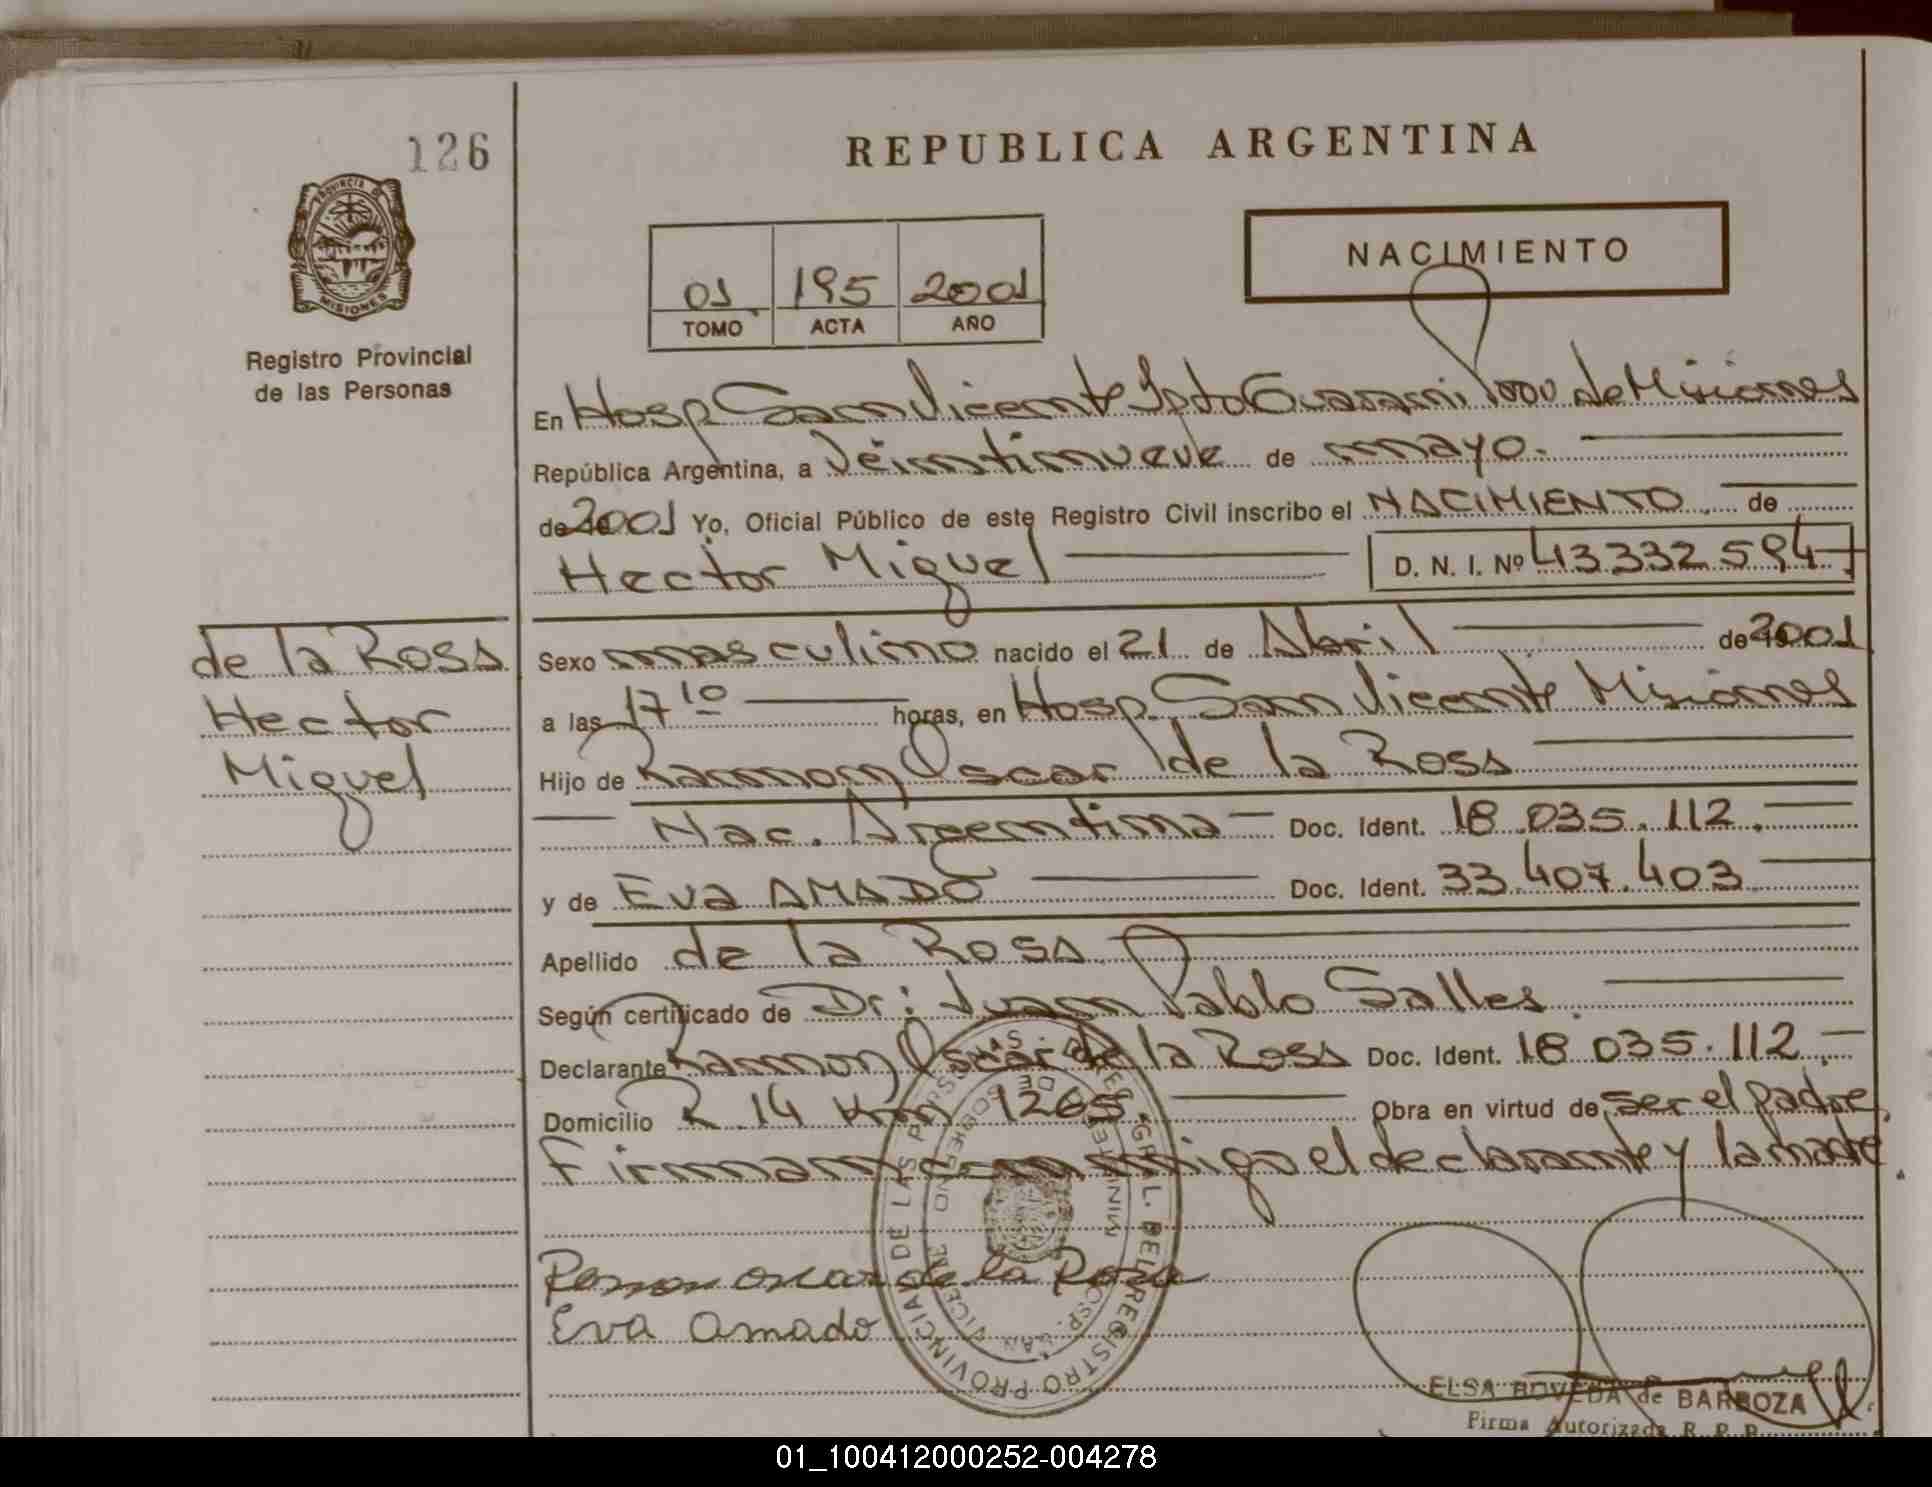 126
REPUBLICA ARGENTINA
PROVINCIA DE
MISIONES
Registro Provincial
de las Personas
NACIMIENTO
01 195 2001
TOMO ACTA AÑO
En Hosp San Vicente Dpto Guarani Prov de Misiones
República Argentina, a Veintinueve de mayo.
de 2001 Yo, Oficial Público de este Registro Civil inscribo el NACIMIENTO de
Hector Miguel D. N. I. Nº 43.332.594
de la Rosa
Hector
Miguel
Sexo masculino nacido el 21 de Abril de 2001
a las 17 10 horas, en Hosp. San Vicente Misiones
Hijo de Ramon Oscar de la Rosa
Nac. Argentina Doc. Ident. 18.035.112.
y de Eva AMADO Doc. Ident. 33.407.403
Apellido de la Rosa
Según certificado de Dr: Juan Pablo Salles
Declarante Ramon Oscar de la Rosa Doc. Ident. 18.035.112.
Domicilio R. 14 Km 1265. Obra en virtud de ser el padre,
Firman conmigo el declarante y la madre.
Ramon oscar de la Rosa
Eva amado
DIREC. GRAL. DEL REGISTRO PROVINCIAL DE LAS PERSONAS
MINISTERIO DE GOBIERNO
HOSP. SAN VICENTE
ELSA BOVEDA de BARBOZA
Firma Autorizada R. P. P.
01_100412000252-004278